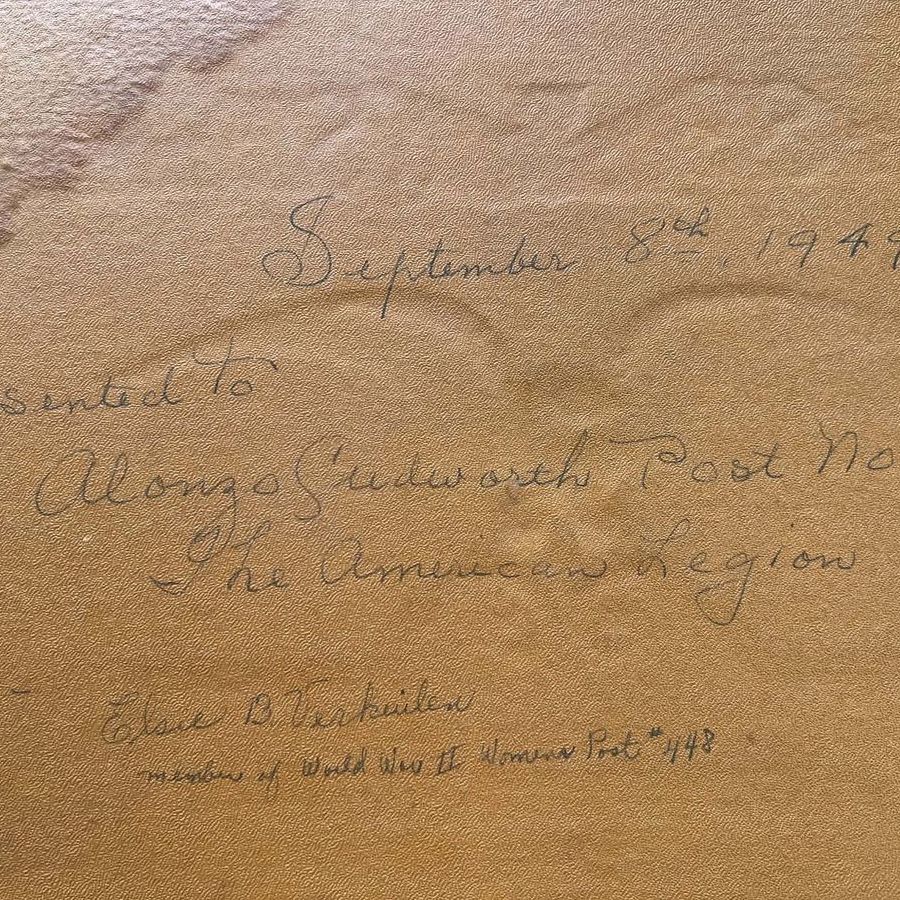 September 8th, 1949
sented to
Alonzo Cudworth Post No
The American Legion
Elsie B. Verkuilen
member of World War II Womens Post #448